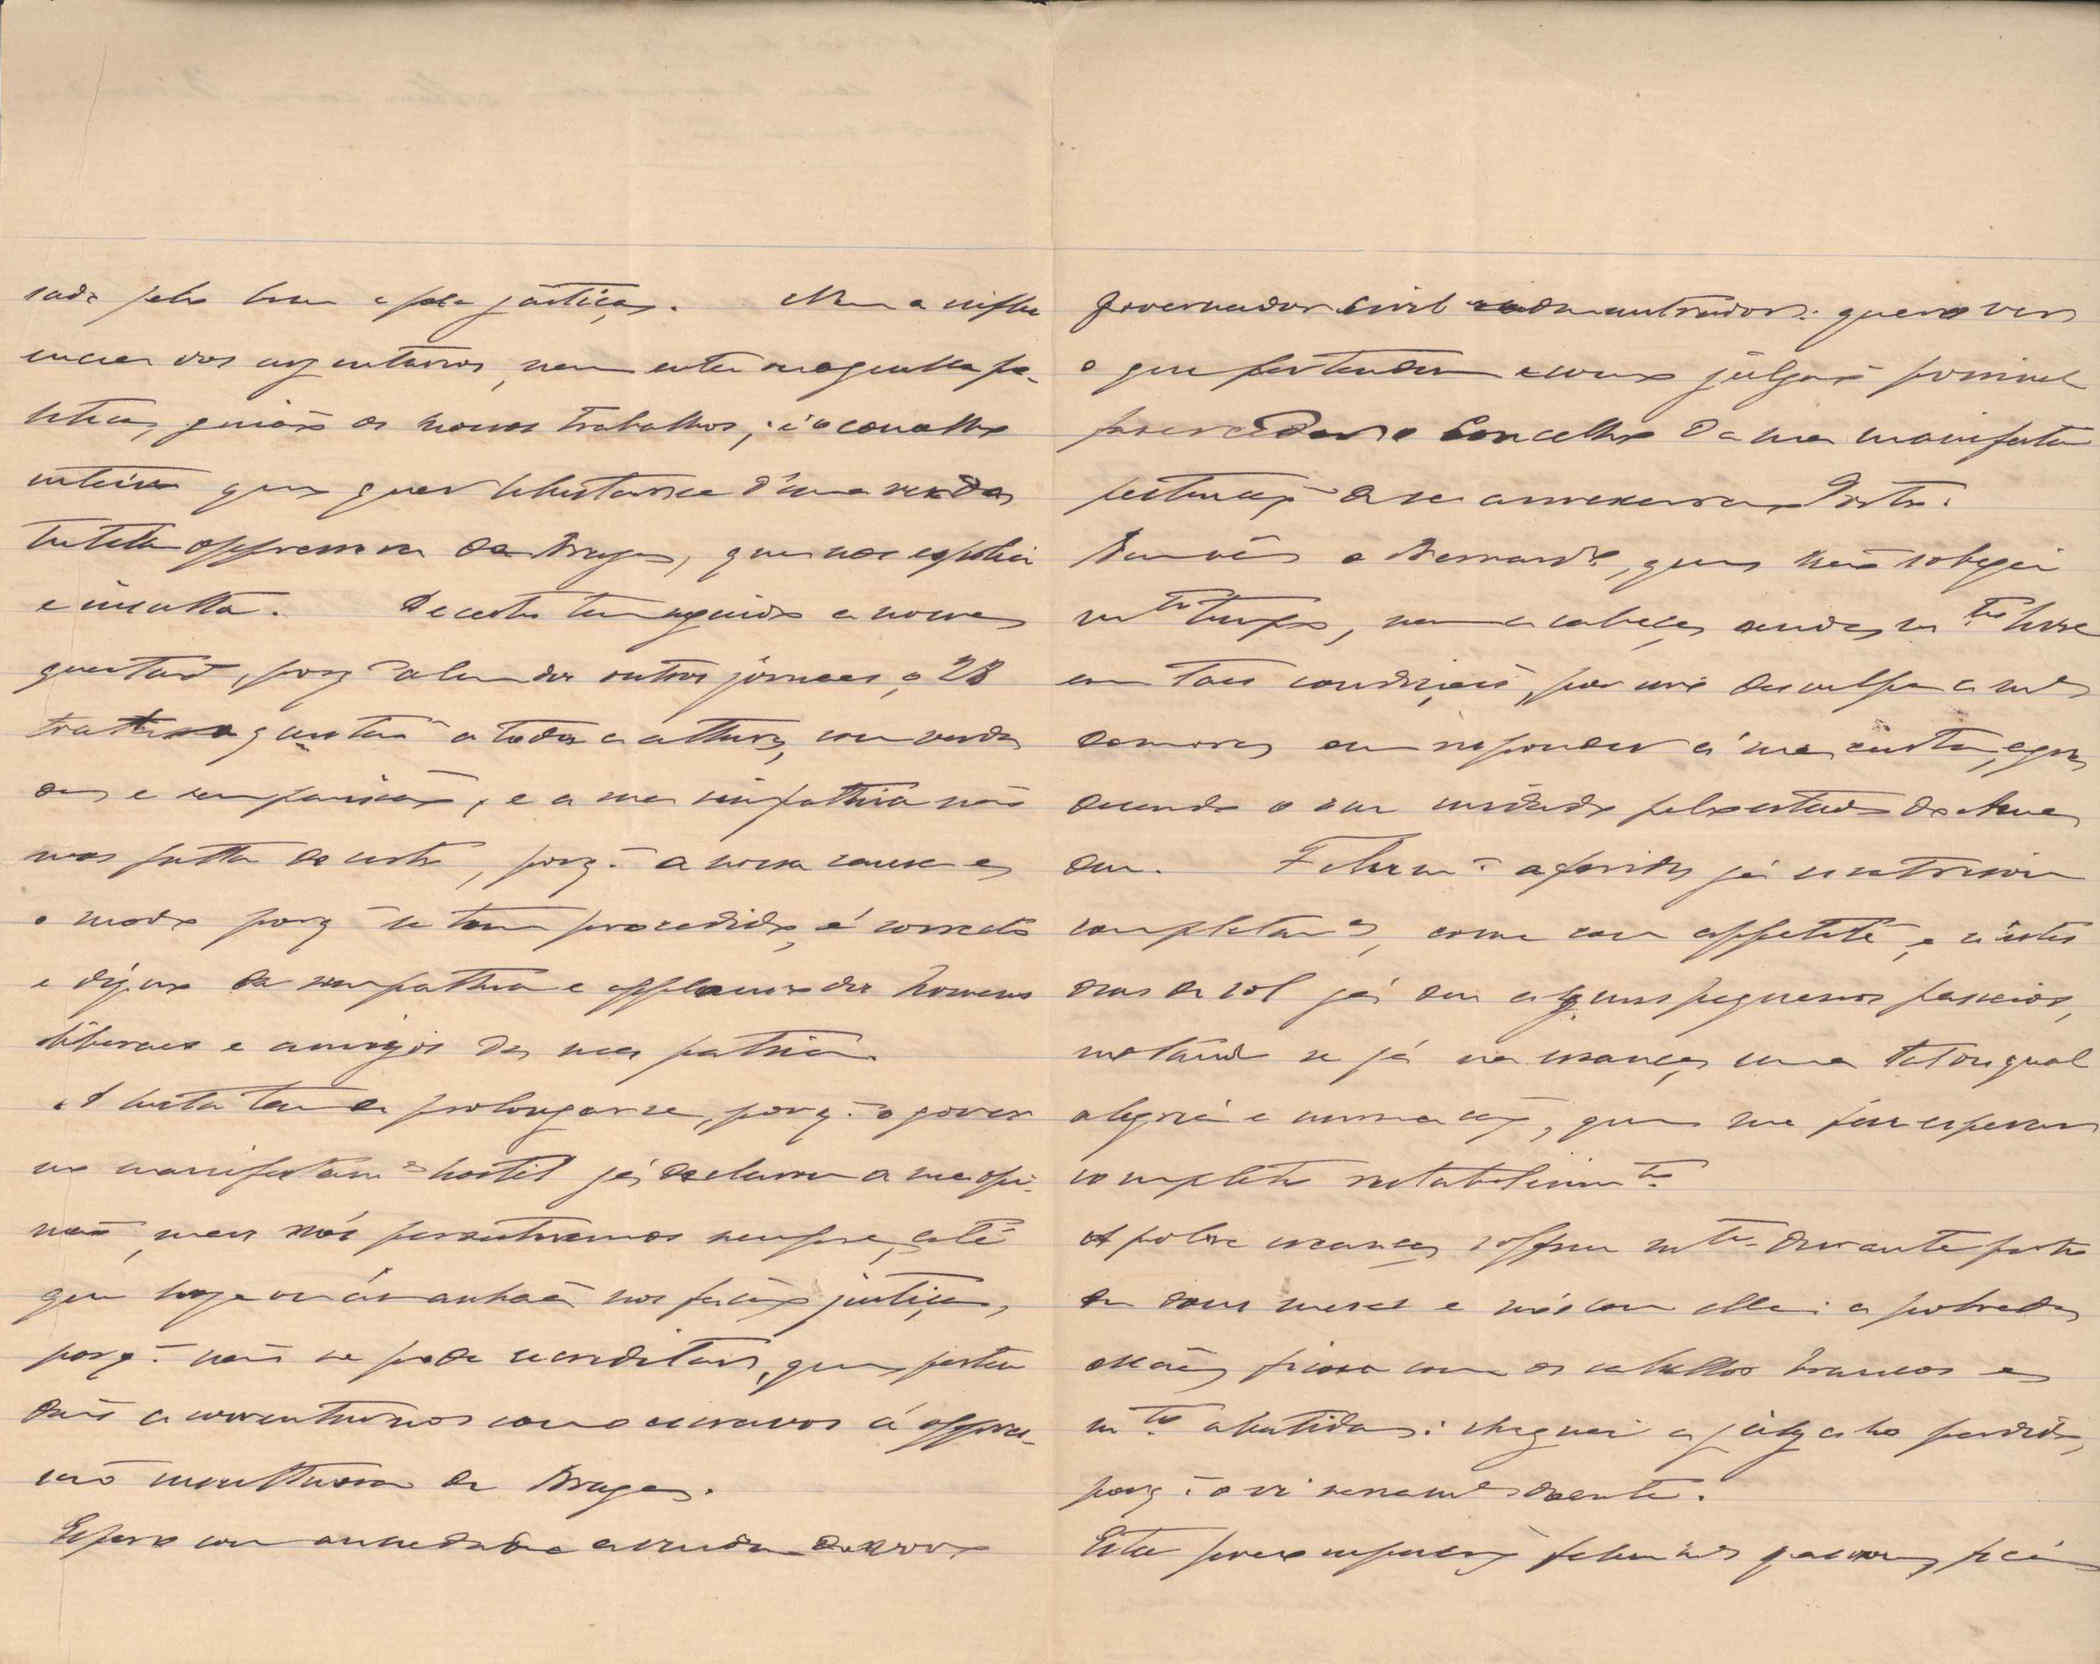 sado pelo bem e pela justiça. Nem a influ
encia dos argentarios, nem esta ou aquella po-
litica, guião os nossos trabalhos; é o concelho
inteiro que quer libertar-se d'uma
tutella oppressora de Braga, que nos espolia
e insulta. De certo tem seguido a nossa
questão, porq. alem dos outros jornaes, o 28
trata a questão a toda a altura, com verda
de e , e a sua simpathia não
nos falta de certo, porq. a nossa causa e
o modo porq. se tem procedido, é correcto
e digno da sympathia e applauso dos homens
liberaes e amigos da sua patria.
A lucta tem de prolongar-se, porq. o gover
no manifestam.e hostil já declarou a sua opi-
nião, mas nós persistiremos sempre, até
que hoje ou ámanhaã nos fação justiça,
porq. não se pode acreditar, que perten
dão a como escravos á oppres-
são de Braga.
Espero com anciedade a vinda do novo
governador civil e administrador: quero ver
o que pertendem e como julgão possivel
o Concelho da sua manifesta
pertenção de se annexar ao Porto.
Bem vês o Bernardo, que não sobeja
m.to tempo, nem a cabeça anda m.to livre
em taes condições, por isso desculpa a m.a
demora em responder á sua carta, agra
decendo o seu cuidado pelo estado do
. Felizm.e a ferida já cicatrisou
completam.e, come com appetite, e n'estes
dias de sol já deu alguns pequenos passeios,
notando se já na creança uma tal ou qual
alegria e animação, que me faz esperar
completo restabelecim.to
A pobre creança soffreu m.to durante perto
de dous mezes e nós com ella: a pobre da
Mãe, ficou com os cabellos brancos e
m.to abatida: cheguei a julgal-o perdido,
porq. o vi seriam.e doente.
Este felizm.e passou, ficá